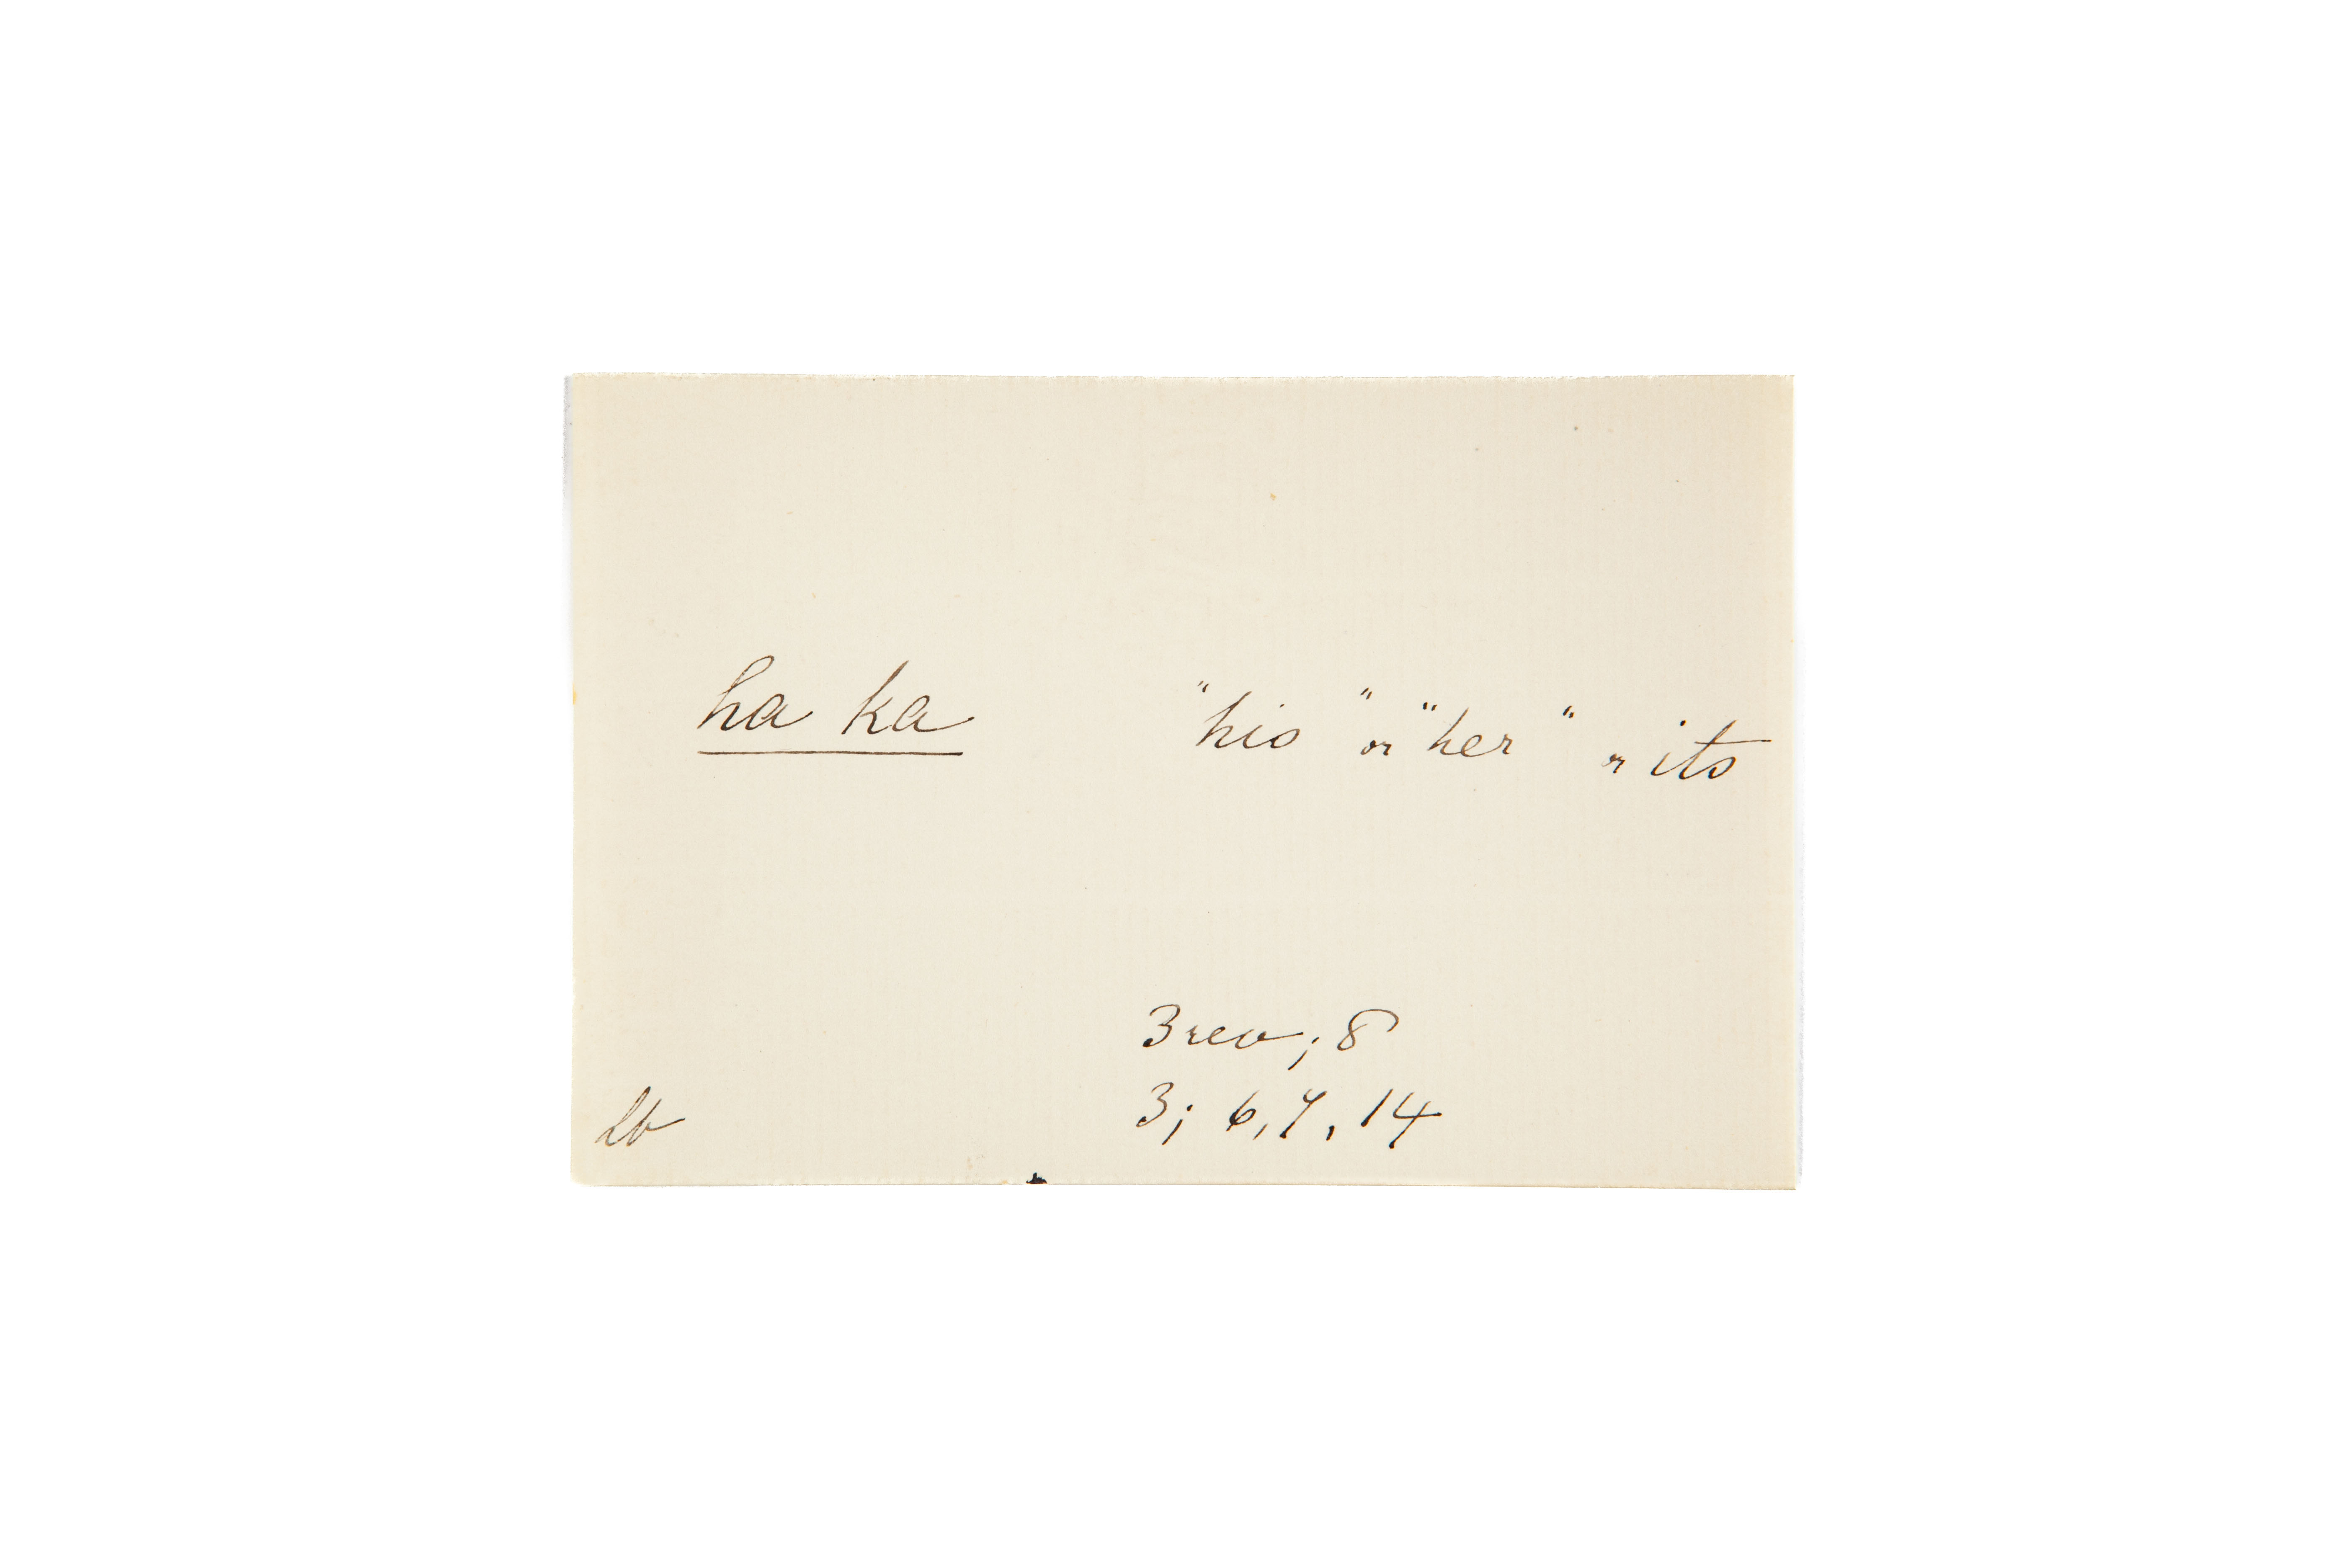 ha ka "his" or "her" or its
3 rev; 8
3; 6, 7, 14